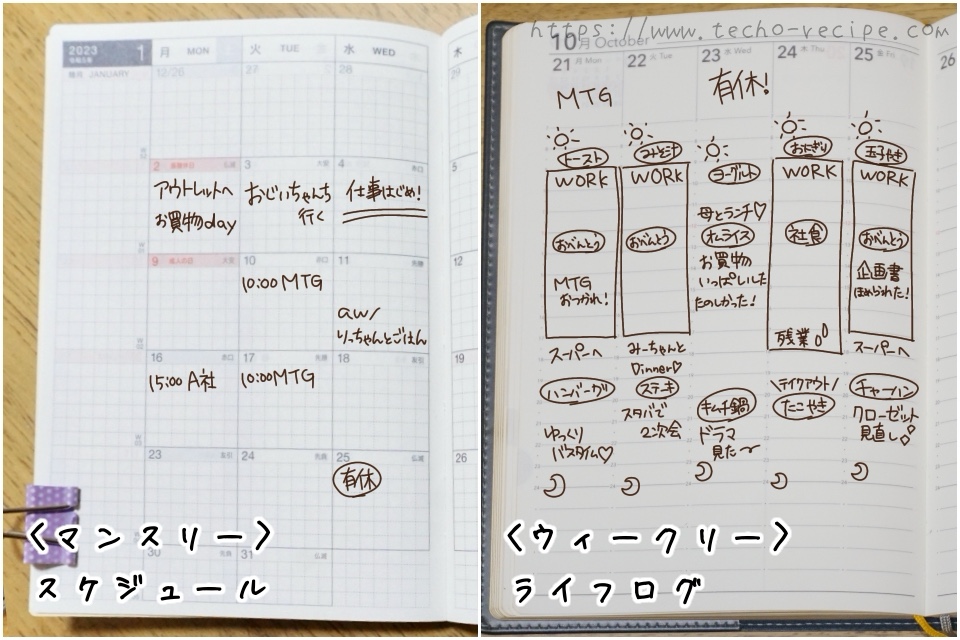 https://www.techo-recipe.com
2023
1
JANUARY
月 MON
火 TUE
水 WED
木
12/26
27
28
29
2
3
4
5
アウトレットへ
お買物day
おじいちゃんち
行く
仕事はじめ!
9 成人の日
10
11
12
10:00 MTG
aw/
りっちゃんとごはん
16
17
18
19
15:00 A社
10:00 MTG
23
24
25
26
有休
30
31
〈マンスリー〉
スケジュール
10月 October
21 月 Mon
22 火 Tue
23 水 Wed
24 木 Thu
25 金 Fri
26
MTG
有休!
トースト
WORK
おべんとう
MTG
おつかれ!
スーパーへ
ハンバーグ
ゆっくり
バスタイム♡
みそ汁
WORK
おべんとう
みーちゃんと
Dinner♡
ステーキ
スタバで
2次会
ヨーグルト
母とランチ♡
オムライス
お買物
いっぱいした
たのしかった!
キムチ鍋
ドラマ
見た〜
おにぎり
WORK
社食
残業
\テイクアウト/
たこやき
玉子やき
WORK
おべんとう
企画書
ほめられた!
スーパーへ
チャーハン
クローゼット
見直し
〈ウィークリー〉
ライフログ